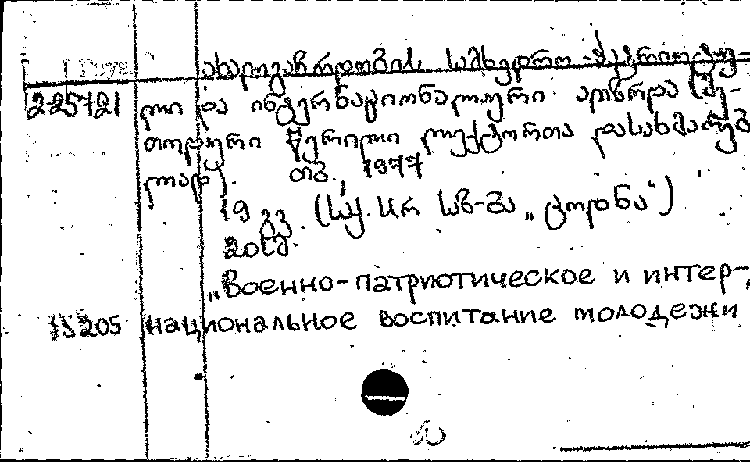 ახალგაზრდობის სამხედრო-პატრიოტუ-
225421 ლი და ინტერნაციონალური აღზრდა (მე-
თოდური წერილი ლექტორთა დასახმარებ
ლად). თბ., 1977
19 გვ. (საქ. სსრ საზ-ბა „ცოდნა“)
20სმ.
„Военно-патриотическое и интер-
15205 национальное воспитание молодежи